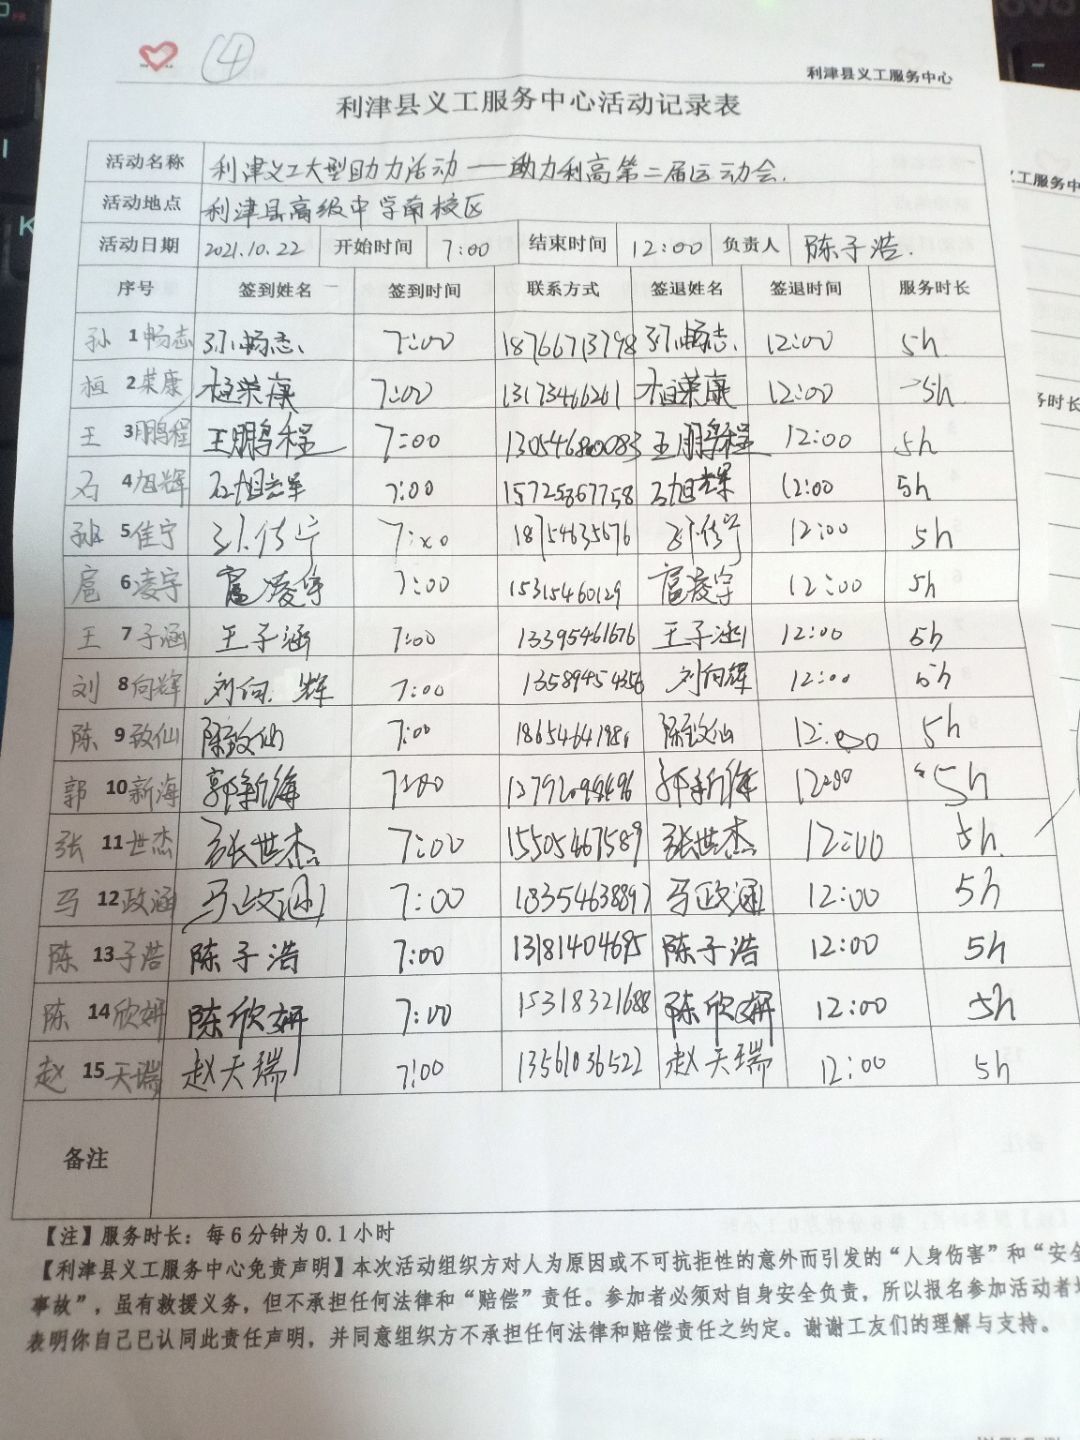 ④
利津县义工服务中心
利津县义工服务中心活动记录表
活动名称 利津义工大型助力活动——助力利高第二届运动会.
活动地点 利津县高级中学南校区
活动日期 2021.10.22 开始时间 7:00 结束时间 12:00 负责人 陈子浩.
序号 签到姓名 签到时间 联系方式 签退姓名 签退时间 服务时长
孙 1畅志 孙畅志 7:00 18766713798 孙畅志 12:00 5h
桓 2荣康 桓荣康 7:00 13173466261 桓荣康 12:00 5h
王 3鹏程 王鹏程 7:00 王鹏程 12:00 5h
石 4旭辉 石旭辉 7:00 15725867758 石旭辉 12:00 5h
孙 5佳宁 孙佳宁 7:00 18754635676 孙佳宁 12:00 5h
扈 6凌宇 扈凌宇 7:00 15315460129 扈凌宇 12:00 5h
王 7子涵 王子涵 7:00 13395461676 王子涵 12:00 5h
刘 8向辉 刘向辉 7:00 13589454356 刘向辉 12:00 5h
陈 9致仙 陈致仙 7:00 陈致仙 12:00 5h
郭 10新海 郭新海 7:00 郭新海 12:00 5h
张 11世杰 张世杰 7:00 15505467589 张世杰 12:00 5h
马 12政涵 马政涵 7:00 18354638897 马政涵 12:00 5h
陈 13子浩 陈子浩 7:00 13181404695 陈子浩 12:00 5h
陈 14欣妍 陈欣妍 7:00 15318321688 陈欣妍 12:00 5h
赵 15天瑞 赵天瑞 7:00 13561036522 赵天瑞 12:00 5h
备注
【注】服务时长：每6分钟为0.1小时
【利津县义工服务中心免责声明】本次活动组织方对人为原因或不可抗拒性的意外而引发的“人身伤害”和“安全
事故”，虽有救援义务，但不承担任何法律和“赔偿”责任。参加者必须对自身安全负责，所以报名参加活动者
表明你自己已认同此责任声明，并同意组织方不承担任何法律和赔偿责任之约定。谢谢工友们的理解与支持。
工服务中
务时长